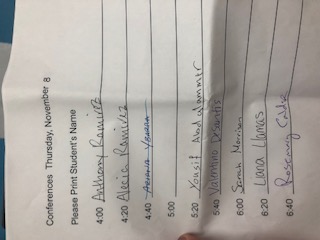 Conferences Thursday, November 8
Please Print Student's Name
4:00 Anthony Ramirez
4:20 Alecia Ramirez
4:40
5:00
5:20 Yousif Abdulammer
5:40 Valentino
6:00 Sarah Norrison
6:20 Liana Llamas
6:40 Rosemary